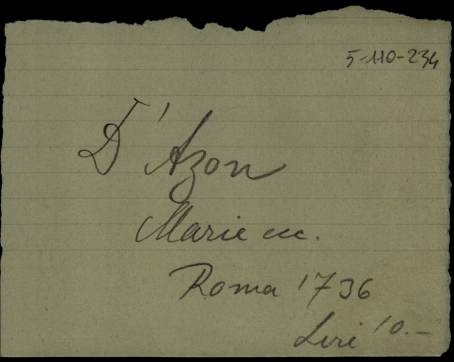 5-110-234
D'Azon
Marie ecc.
Roma 1736
Lire 10.-